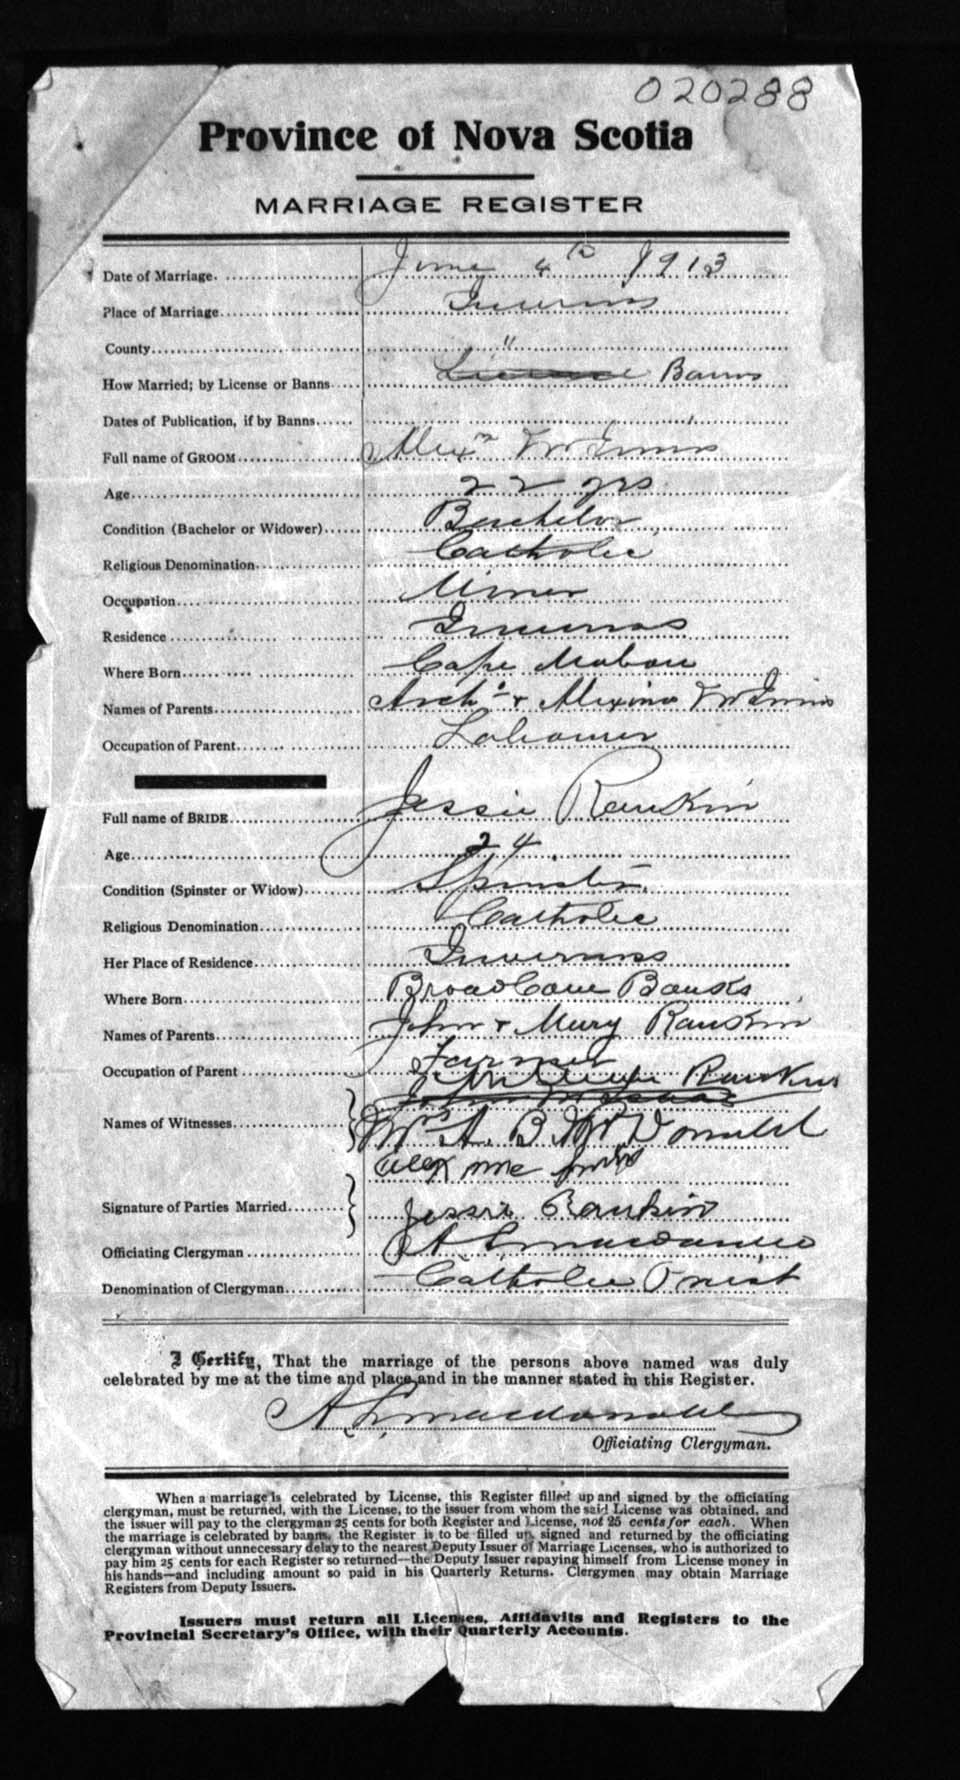 020288
Province of Nova Scotia
MARRIAGE REGISTER
Date of Marriage. June 4th 1913
Place of Marriage Inverness
County "
How Married; by License or Banns Licence Banns
Dates of Publication, if by Banns
Full name of GROOM Alexr McInnis
Age 22 yrs
Condition (Bachelor or Widower) Bachelor
Religious Denomination Catholic
Occupation Miner
Residence Inverness
Where Born Cape Mabou
Names of Parents Archd + Alexina McInnis
Occupation of Parent Labourer
Full name of BRIDE Jessie Rankin
Age 24
Condition (Spinster or Widow) Spinster
Religious Denomination Catholic
Her Place of Residence Inverness
Where Born Broad Cove Banks
Names of Parents John + Mary Rankin
Occupation of Parent Farmer
Rankin
John McIsaac
Names of Witnesses Mrs A. B. McDonald
Alex Mc Innis
Signature of Parties Married Jessie Rankin
Officiating Clergyman A L Macdonald
Denomination of Clergyman Catholic Priest
I Certify, That the marriage of the persons above named was duly
celebrated by me at the time and place and in the manner stated in this Register.
A L Macdonald
Officiating Clergyman.
When a marriage is celebrated by License, this Register filled up and signed by the officiating
clergyman, must be returned, with the License, to the issuer from whom the said License was obtained, and
the issuer will pay to the clergyman 25 cents for both Register and License, not 25 cents for each. When
the marriage is celebrated by banns, the Register is to be filled up, signed and returned by the officiating
clergyman without unnecessary delay to the nearest Deputy Issuer of Marriage Licenses, who is authorized to
pay him 25 cents for each Register so returned—the Deputy Issuer repaying himself from License money in
his hands—and including amount so paid in his Quarterly Returns. Clergymen may obtain Marriage
Registers from Deputy Issuers.
Issuers must return all Licenses, Affidavits and Registers to the
Provincial Secretary's Office, with their Quarterly Accounts.